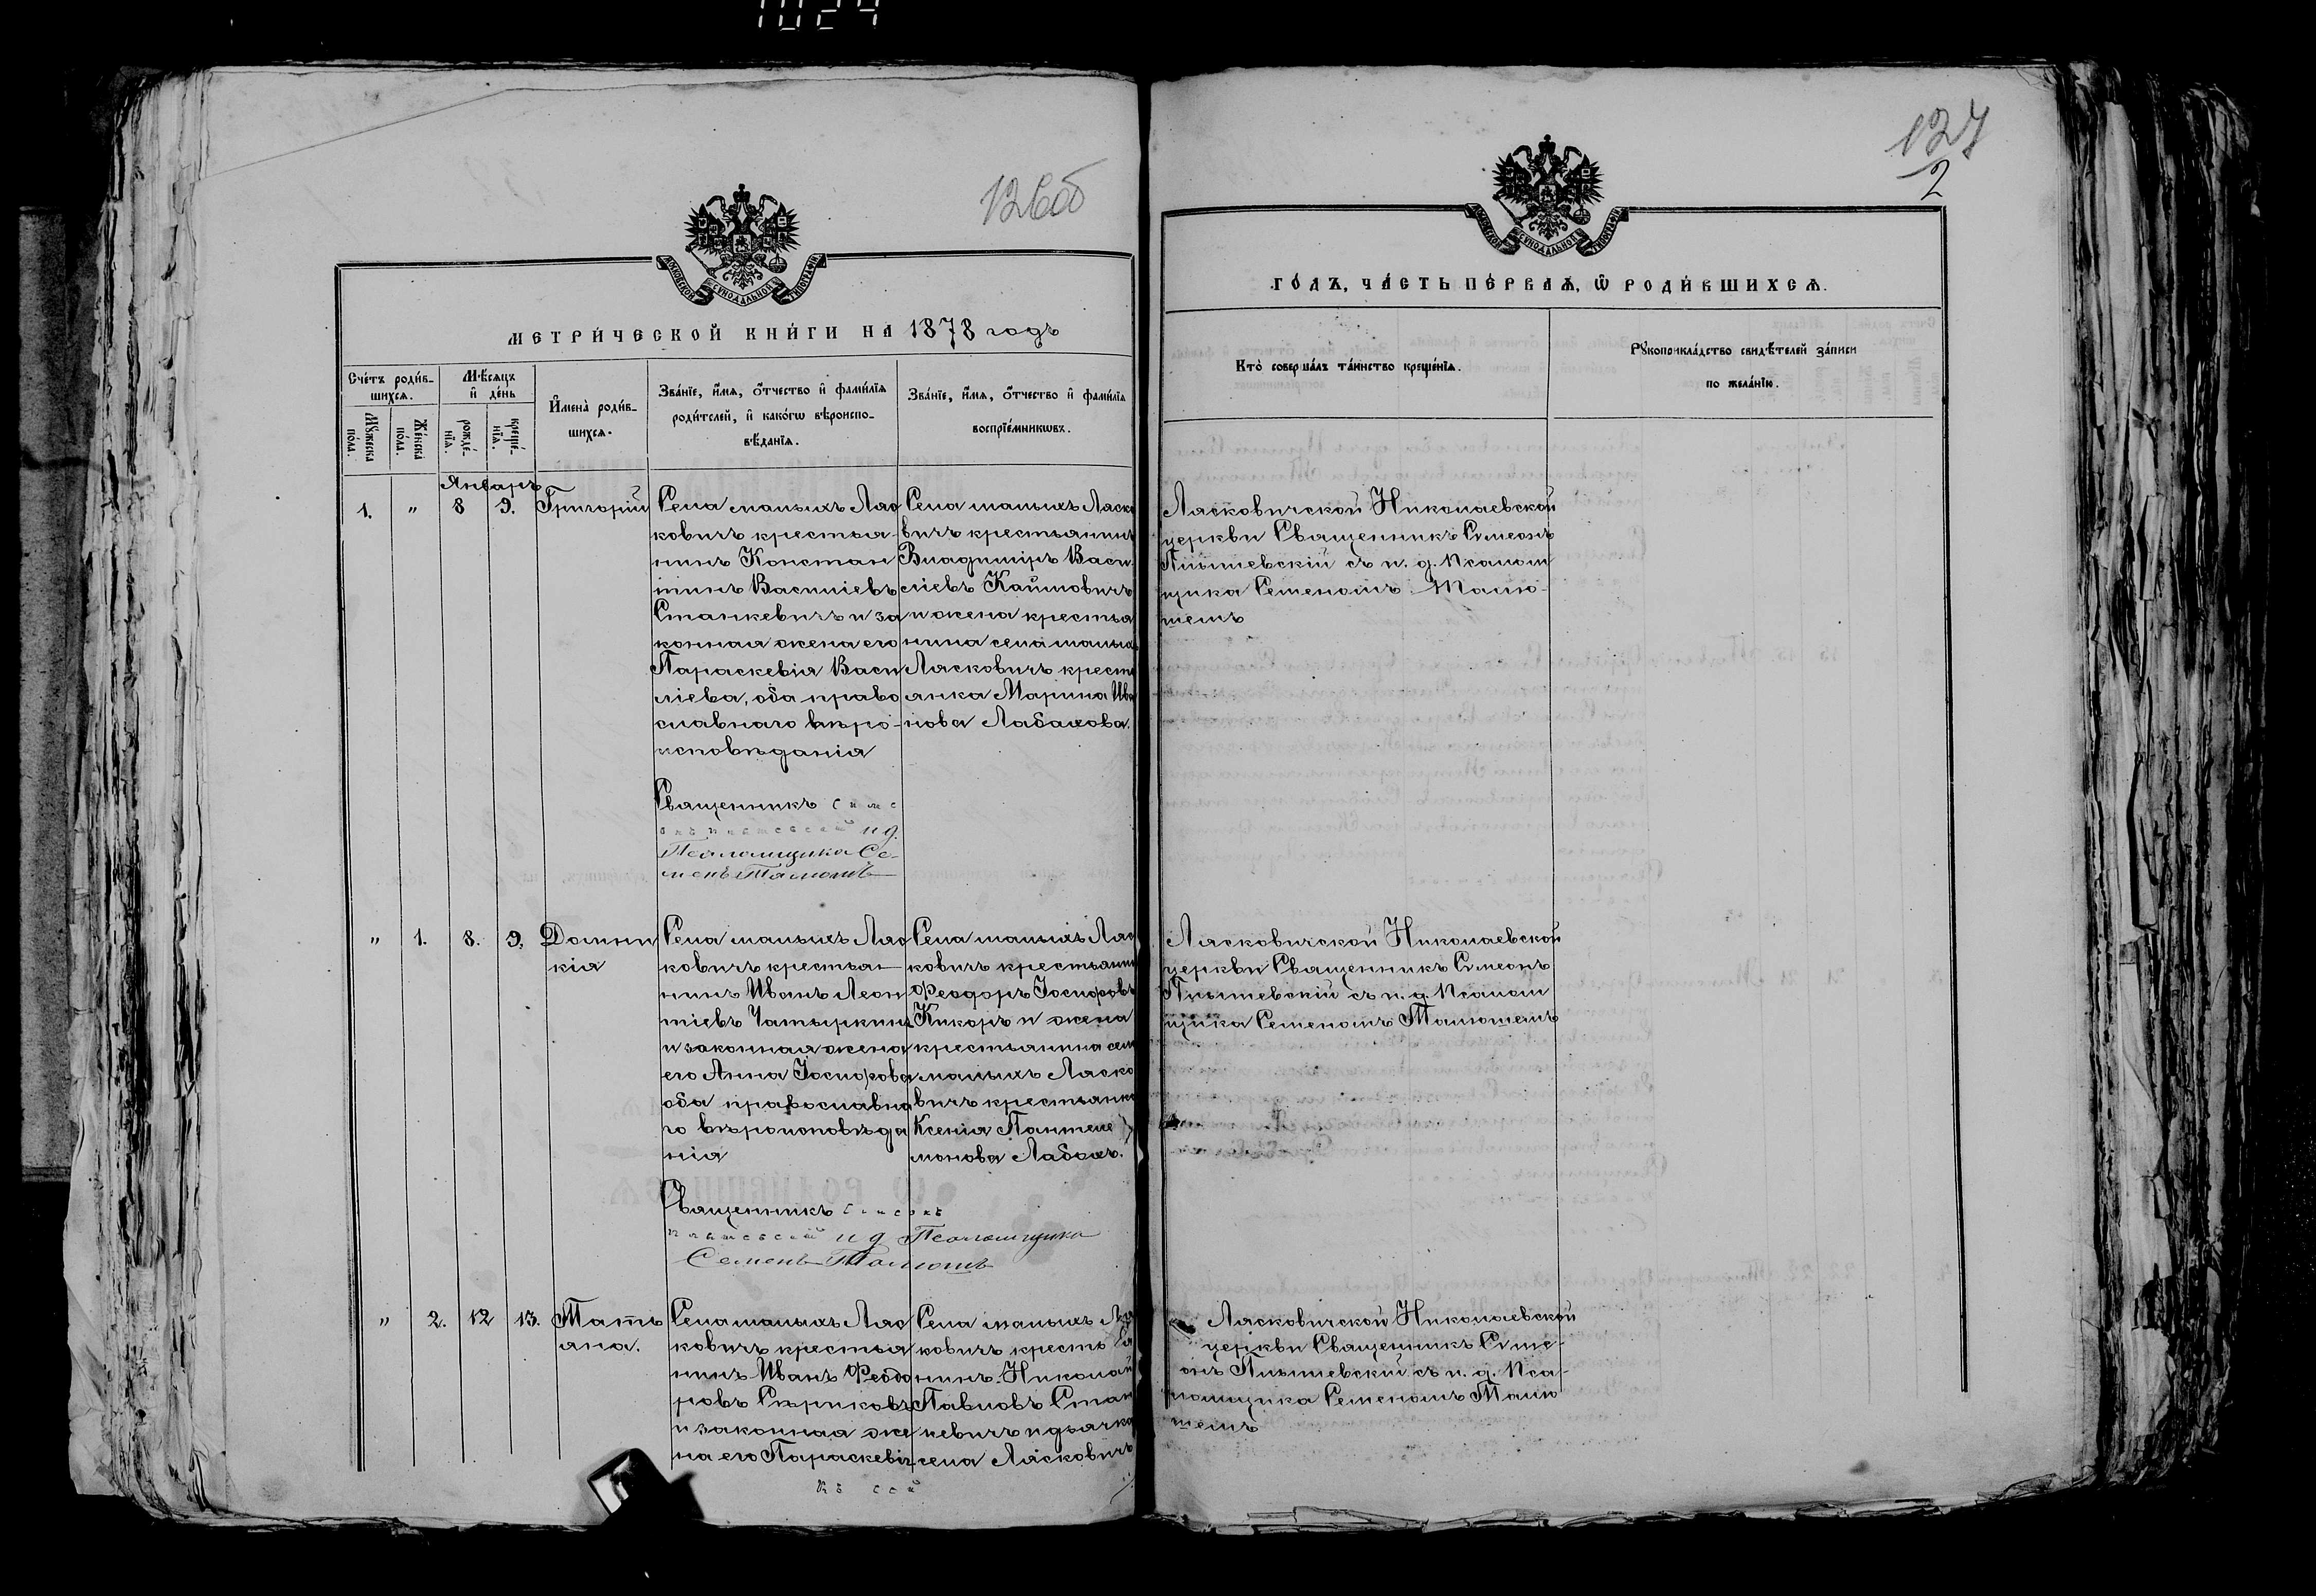 1024
126об
МОСКОВСКОЙ СУНОДАЛЬНОЙ ТИПОГРАФІИ
МЕТРИ́ЧЕСКОЙ КНИ́ГИ НА 1878 годъ
Сче́тъ роди́в-
шихсѧ.
Мѣ́сяцъ
и҆ де́нь
Мꙋ́жеска
по́ла.
Же́нска
по́ла.
рожде́-
нїѧ.
креще́-
нїѧ.
И҆мена̀ роди́в-
шихсѧ.
Зва́нїе, и҆́мѧ, ѻ҆́тчество и҆ фами́лїѧ
роди́телей, и҆ како́гѡ вѣроиспо-
вѣ́данїѧ.
Зва́нїе, и҆́мѧ, ѻ҆́тчество и҆ фами́лїѧ
воспрїе́мникѡвъ.
Январь
1.
"
8
9.
Григорій
Села малыхъ Ляс
ковичъ крестья-
нинъ Констан
тинъ Василіевъ
Станкевичъ и за
конная жена его
Параскевія Васи
ліева, оба право
славнаго вѣро-
исповѣданія
Священникъ Симе
онъ и д.
Псаломщика Се-
менъ Талюшъ
Села малыхъ Ляско
вичъ крестьянинъ
Владиміръ Васи
ліевъ Каймовичъ
и жена крестья
нина села малых
Лясковичъ кресть
янка Марина Ива
нова Лабахова.
"
1.
8.
9.
Домни
кія
Села малыхъ Ляс
ковичъ крестья-
нинъ Иванъ Леон
тіевъ Чатыркинъ
и законная жена
его Анна Іосифова
оба православна
го вѣроисповѣда
нія
Священникъ Симеонъ
и д Псаломщика
Семенъ Талюшъ
Села малыхъ Ляс
ковичъ крестьянин
Феодоръ Іосифовъ
Кикоръ и жена
крестьянина села
малыхъ Ляско
вичъ крестьянка
Ксенія Пантеле
монова Лабахъ.
"
2.
12
13.
Тать
яна.
Села малыхъ Ляс
ковичъ крестья
нинъ Иванъ Феодо
ровъ Сѣриковъ
и законная же
на его Параскевія
Села малыхъ Ляс
ковичъ крестья
нинъ Николай
Павловъ Стан
кевичъ и дьячка
села Лясковичъ
127
2
МОСКОВСКОЙ СУНОДАЛЬНОЙ ТИПОГРАФІИ
ГО́ДЪ, ЧА́СТЬ ПЕ́РВАѦ, Ѡ҆ РОДИ́ВШИХСѦ.
Кто̀ соверша́лъ та́инство креще́нїѧ.
Рꙋкоприкла́дство свидѣ́телей за́писи
по жела́нїю.
Лясковичской Николаевской
церкви Священникъ Симеонъ
съ и. д. Псалом
щика Семеномъ Талю-
шемъ
Лясковичской Николаевской
церкви Священникъ Симеонъ
съ и. д. Псалом
щика Семеномъ Талюшемъ
Лясковичской Николаевской
церкви Священникъ Симе-
онъ съ и. д. Пса-
ломщика Семеномъ Талю
шемъ